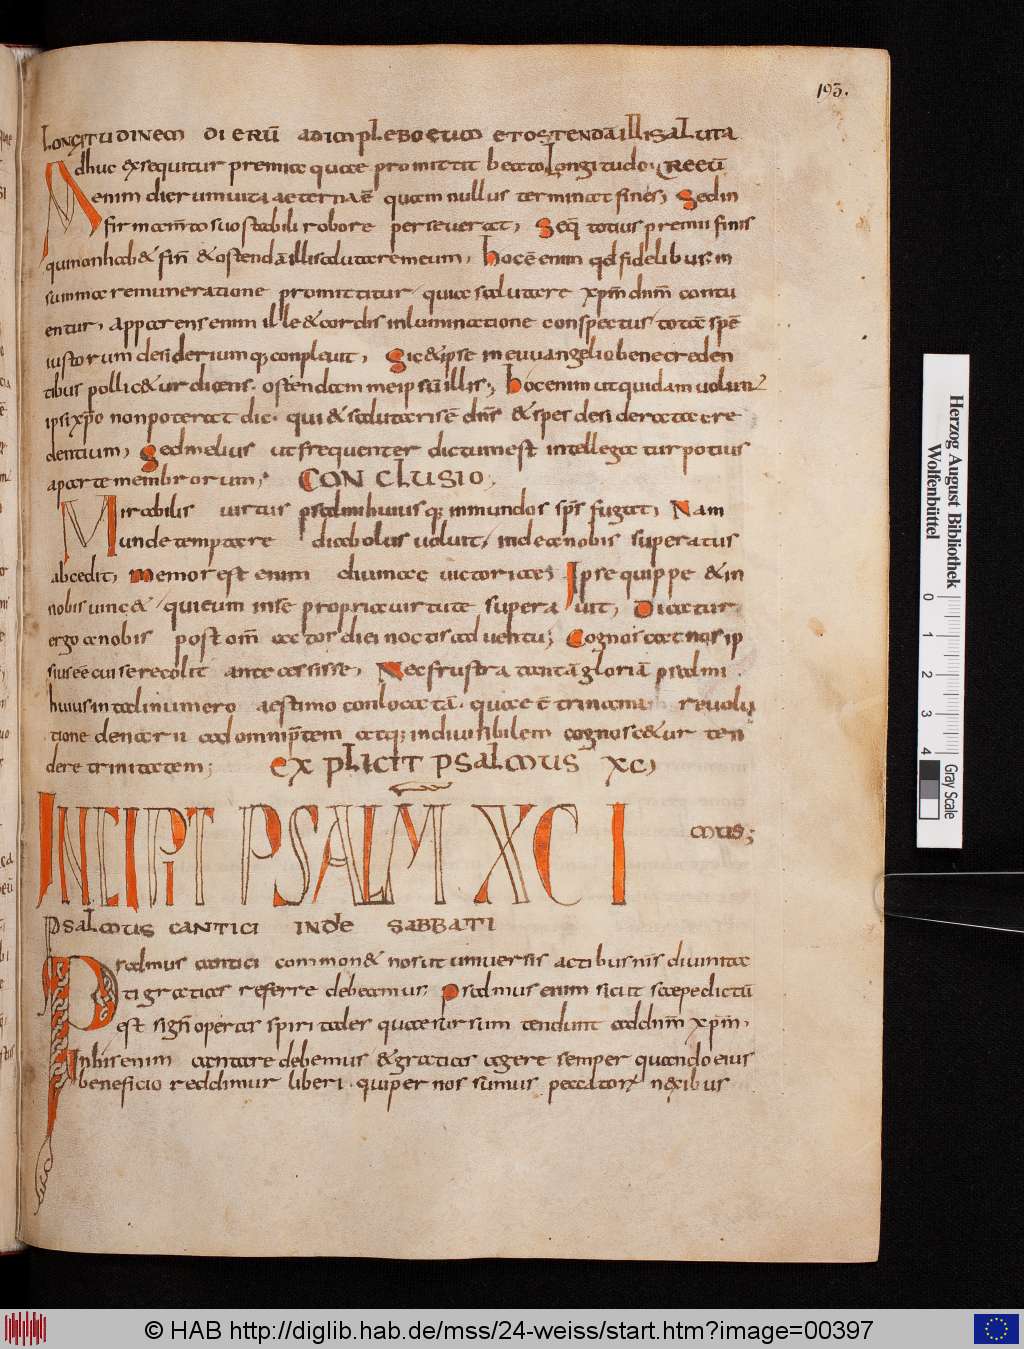 193.
LONGITUDINEM DIERŪ ADIMPLEBO EUM ET OSTENDĀ ILLI SALUTA
Adhuc exsequitur premia quae promittit beato Longitudo REEŪ
enim dierum vita aeterna ē quam nullus terminat finis, Sed in
firmam̄to suo stabili robore perseverat, Seq̄ totius premii finis
qui non habet fin̄ & ostendā illi salutare meum, hoc ē enim qd fidelibus in
summa remuneratione promittitur quia salutare xpm̄ dnm̄ contu
entur, apparens enim ille & cordis inluminatione conspectus totā spē
iustorum desideriumq; conpleuit, Sic & ipse in euuangelio bene creden
tibus pollicetur dicens. ostendam meipsū illis; hoc enim ut quidam uolunt
ipsi xp̄o non poterat dic. qui & salutaris ē dn̄s & spes desiderata cre
dentium, Sed melius ut frequenter dictum est intellegatur potius
a parte membrorum, CONCLUSIO,
Mirabilis uirtus psalmi huius q; inmundos sp̄s fugat, Nam
unde temptare diabolus uoluit, inde a nobis superatus
abcedit, Memor est enim diuinae uictoriae; Ipse quippe & in
nobis uinc& qui eum in se propria uirtute supera uit, Dicatur
ergo a nobis post om̄ actos diei noctis aduentu; Cognoscat nos ip
sius eē cui se recolit ante cessisse, Nec frustra tantā gloriā psalmi
huius in tali numero aestimo conlocatā. quae ē trina revolu
tione denarii ad omnip̄tem atq; indiuisibilem cognoscetur ten
dere trinitatem; EXPLICIT PSALMUS XC,
INCIPIT PSALM XCI
MUS;
PSALMUS CANTICI IN DIE SABBATI
Psalmus cantici commonet nos ut uniuersis actibus nr̄is diuinitа
ti gratias referre debeamus. Psalmus enim sicut saepe dictū
est sign̄ operas spiritales quae sursum tendunt ad dnm̄ xpm̄,
In his enim cantare debemus & gratias agere semper quando eius
beneficio reddimur liberi. qui per nos sumus peccator nexibus
Herzog August Bibliothek
Wolfenbüttel
0 1 2 3 4
Gray Scale
© HAB http://diglib.hab.de/mss/24-weiss/start.htm?image=00397